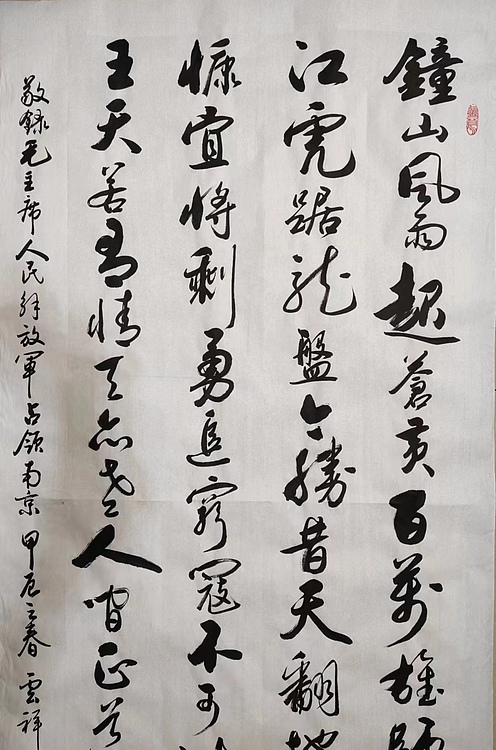 鐘山風雨起蒼黃百萬雄師
江虎踞龍盤今勝昔天翻地
慷宜將剩勇追窮寇不可
王天若有情天亦老人間正道
敬錄毛主席人民解放軍占領南京 甲辰之春 雲祥